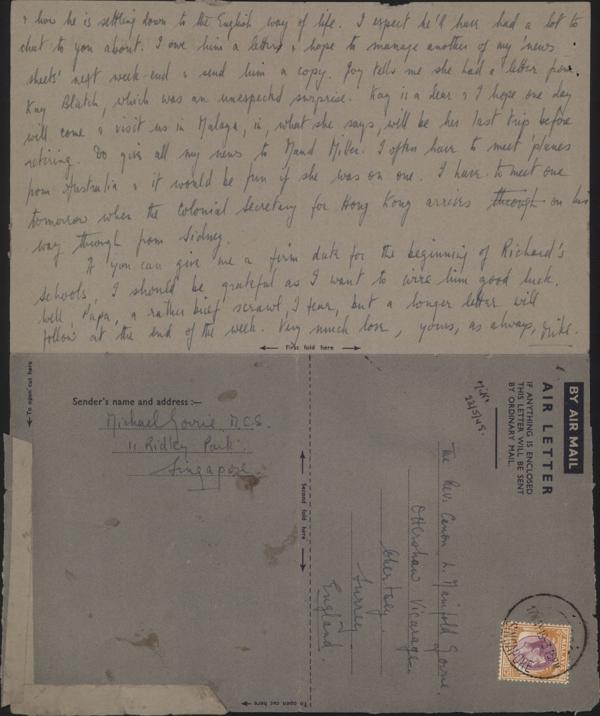 & how he is settling down to the English way of life. I expect he'll have had a lot to
chat to you about. I owe him a letter & hope to manage another of my 'news
sheets' next week-end & send him a copy. Joy tells me she had a letter from
Kay Blatch, which was an unexpected surprise. Kay is a dear & I hope one day
will come & visit us in Malaya, in what she says, will be her last trip before
retiring. Do give all my news to Maud Miller. I often have to meet 'planes
from Australia & it would be fun if she was on one. I have to meet one
tomorrow when the Colonial Secretary for Hong Kong arrives through on his
way through from Sidney.
If you can give me a firm date for the beginning of Richard's
schools, I should be grateful as I want to wire him good luck.
Well, Papa, a rather brief scrawl, I fear, but a longer letter will
follow at the end of the week. Very much love, yours, as always, Mike.
First fold here
To open cut here
Sender's name and address :—
Michael Gorrie, M.C.S.
11 Ridley Park
Singapore.
Second fold here
Mike
22/5/45.
BY AIR MAIL
AIR LETTER
IF ANYTHING IS ENCLOSED
THIS LETTER WILL BE SENT
BY ORDINARY MAIL.
The Rev: Canon L. Manifold Gorrie.
Ottershaw Vicarage.
Chertsey.
Surrey
England.
SINGAPORE
To open cut here